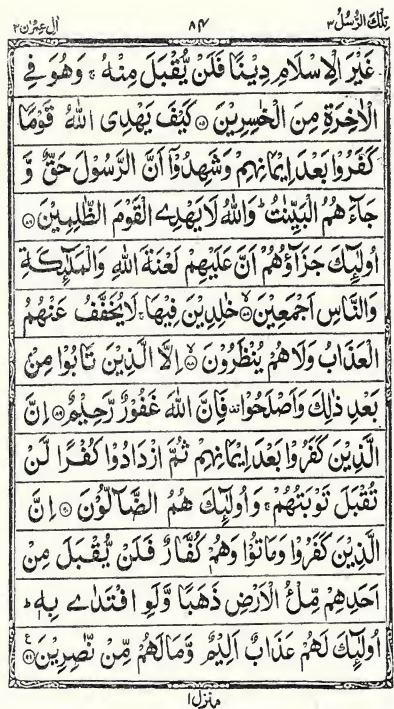 تِلْكَ الرُّسُلُ ٣ ٨٤ اٰلِ عِمْرٰن ٢
غَيْرَ الْاِسْلَامِ دِيْنًا فَلَنْ يُّقْبَلَ مِنْهُ ۚ وَهُوَ فِي
الْاٰخِرَةِ مِنَ الْخٰسِرِيْنَ ﴿٨٥﴾ كَيْفَ يَهْدِي اللّٰهُ قَوْمًا
كَفَرُوْا بَعْدَ اِيْمَانِهِمْ وَشَهِدُوْٓا اَنَّ الرَّسُوْلَ حَقٌّ وَّ
جَآءَهُمُ الْبَيِّنٰتُ ؕ وَاللّٰهُ لَا يَهْدِي الْقَوْمَ الظّٰلِمِيْنَ ﴿٨٦﴾
اُولٰٓئِكَ جَزَآؤُهُمْ اَنَّ عَلَيْهِمْ لَعْنَةَ اللّٰهِ وَالْمَلٰٓئِكَةِ
وَالنَّاسِ اَجْمَعِيْنَ ﴿٨٧﴾ خٰلِدِيْنَ فِيْهَا ۚ لَا يُخَفَّفُ عَنْهُمُ
الْعَذَابُ وَلَا هُمْ يُنْظَرُوْنَ ﴿٨٨﴾ اِلَّا الَّذِيْنَ تَابُوْا مِنْۢ
بَعْدِ ذٰلِكَ وَاَصْلَحُوْا ۟ فَاِنَّ اللّٰهَ غَفُوْرٌ رَّحِيْمٌ ﴿٨٩﴾ اِنَّ
الَّذِيْنَ كَفَرُوْا بَعْدَ اِيْمَانِهِمْ ثُمَّ ازْدَادُوْا كُفْرًا لَّنْ
تُقْبَلَ تَوْبَتُهُمْ ۚ وَاُولٰٓئِكَ هُمُ الضَّآلُّوْنَ ﴿٩٠﴾ اِنَّ
الَّذِيْنَ كَفَرُوْا وَمَاتُوْا وَهُمْ كُفَّارٌ فَلَنْ يُّقْبَلَ مِنْ
اَحَدِهِمْ مِّلْءُ الْاَرْضِ ذَهَبًا وَّلَوِ افْتَدٰى بِهٖ ؕ
اُولٰٓئِكَ لَهُمْ عَذَابٌ اَلِيْمٌ وَّمَا لَهُمْ مِّنْ نّٰصِرِيْنَ ﴿٩١﴾ ع
منزل ١